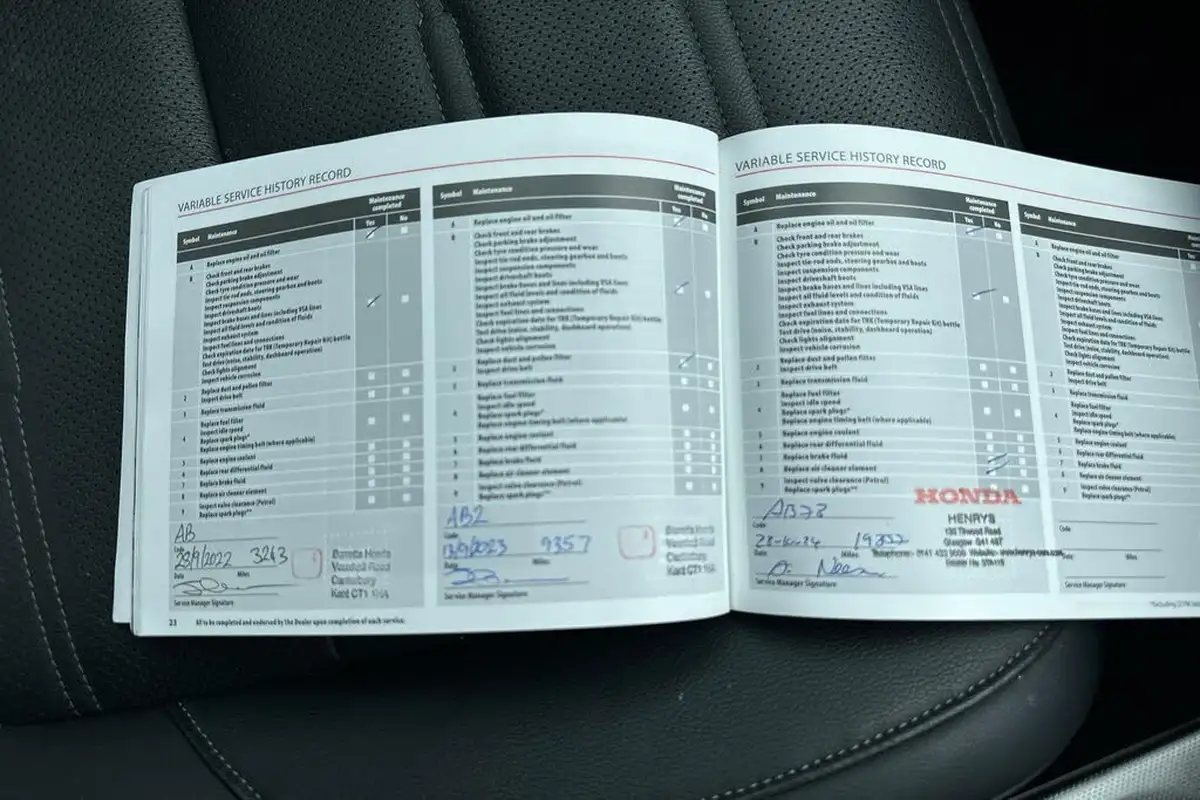 VARIABLE SERVICE HISTORY RECORD
Symbol Maintenance
Maintenance completed
Yes No
A Replace engine oil and oil filter
B Check front and rear brakes
Check parking brake adjustment
Check tyre condition pressure and wear
Inspect tie rod ends, steering gearbox and boots
Inspect suspension components
Inspect driveshaft boots
Inspect brake hoses and lines including VSA lines
Inspect all fluid levels and condition of fluids
Inspect exhaust system
Inspect fuel lines and connections
Check expiration date for TRK (Temporary Repair Kit) bottle
Test drive (noise, stability, dashboard operation)
Check lights alignment
Inspect vehicle corrosion
2 Replace dust and pollen filter
Inspect drive belt
3 Replace transmission fluid
4 Replace fuel filter
Inspect idle speed
Replace spark plugs*
Replace engine timing belt (where applicable)
5 Replace engine coolant
6 Replace rear differential fluid
7 Replace brake fluid
8 Replace air cleaner element
9 Inspect valve clearance (Petrol)
Replace spark plugs**
AB
Code
23/9/2022 3263
Date Miles
Service Manager Signature
Barretts Honda
Vauxhall Road
Canterbury
Kent CT1
23 All to be completed and endorsed by the Dealer upon completion of each service.
Symbol Maintenance
Maintenance completed
Yes No
A Replace engine oil and oil filter
B Check front and rear brakes
Check parking brake adjustment
Check tyre condition pressure and wear
Inspect tie rod ends, steering gearbox and boots
Inspect suspension components
Inspect driveshaft boots
Inspect brake hoses and lines including VSA lines
Inspect all fluid levels and condition of fluids
Inspect exhaust system
Inspect fuel lines and connections
Check expiration date for TRK (Temporary Repair Kit) bottle
Test drive (noise, stability, dashboard operation)
Check lights alignment
Inspect vehicle corrosion
Replace dust and pollen filter
Inspect drive belt
Replace transmission fluid
4 Replace fuel filter
Inspect idle speed
Replace spark plugs*
Replace engine timing belt (where applicable)
5 Replace engine coolant
6 Replace rear differential fluid
7 Replace brake fluid
8 Replace air cleaner element
9 Inspect valve clearance (Petrol)
Replace spark plugs**
AB2
Code
13/9/2023 9357
Date Miles
Service Manager Signature
Barretts Honda
Vauxhall Road
Canterbury
Kent CT1
VARIABLE SERVICE HISTORY RECORD
Symbol Maintenance
Maintenance completed
Yes No
A Replace engine oil and oil filter
B Check front and rear brakes
Check parking brake adjustment
Check tyre condition pressure and wear
Inspect tie rod ends, steering gearbox and boots
Inspect suspension components
Inspect driveshaft boots
Inspect brake hoses and lines including VSA lines
Inspect all fluid levels and condition of fluids
Inspect exhaust system
Inspect fuel lines and connections
Check expiration date for TRK (Temporary Repair Kit) bottle
Test drive (noise, stability, dashboard operation)
Check lights alignment
Inspect vehicle corrosion
2 Replace dust and pollen filter
Inspect drive belt
3 Replace transmission fluid
4 Replace fuel filter
Inspect idle speed
Replace spark plugs*
Replace engine timing belt (where applicable)
5 Replace engine coolant
6 Replace rear differential fluid
7 Replace brake fluid
8 Replace air cleaner element
9 Inspect valve clearance (Petrol)
Replace spark plugs**
Code
Date Miles
Service Manager Signature
HONDA
HENRYS
Road
Glasgow
Telephone:
Symbol Maintenance
Yes
A Replace engine oil and oil filter
B Check front and rear brakes
Check parking brake adjustment
Check tyre condition pressure and wear
Inspect tie rod ends, steering gearbox and boots
Inspect suspension components
Inspect driveshaft boots
Inspect brake hoses and lines including VSA lines
Inspect all fluid levels and condition of fluids
Inspect exhaust system
Inspect fuel lines and connections
Check expiration date for TRK (Temporary Repair Kit) bottle
Test drive (noise, stability, dashboard operation)
Check lights alignment
Inspect vehicle corrosion
2 Replace dust and pollen filter
Inspect drive belt
3 Replace transmission fluid
4 Replace fuel filter
Inspect idle speed
Replace spark plugs*
Replace engine timing belt (where applicable)
5 Replace engine coolant
6 Replace rear differential fluid
7 Replace brake fluid
8 Replace air cleaner element
9 Inspect valve clearance (Petrol)
Replace spark plugs**
Code
Date Miles
Service Manager Signature